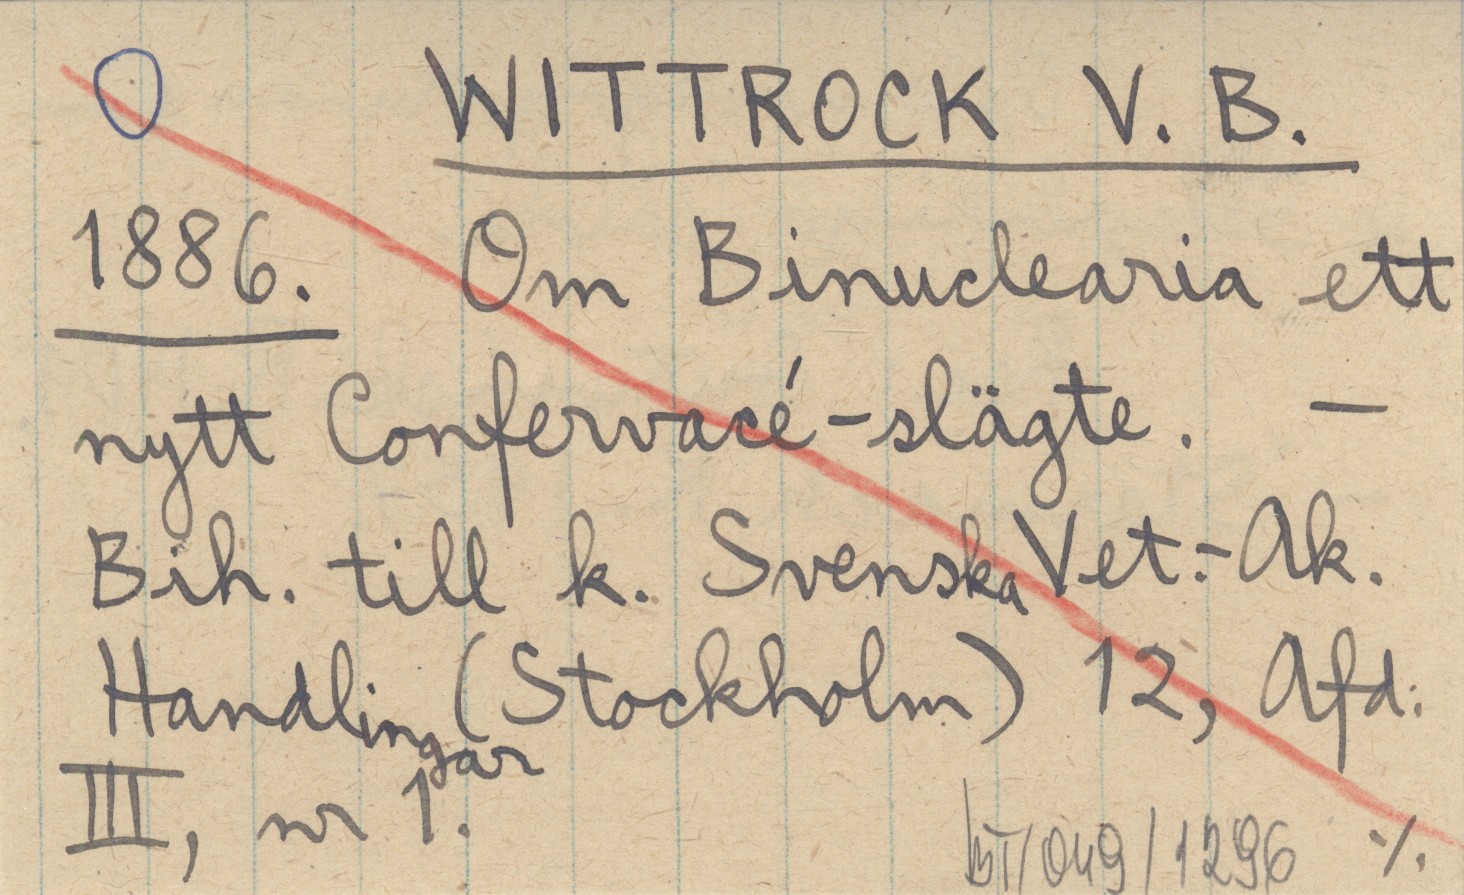 WITTROCK V. B.
1886. Om Binuclearia ett
nytt Confervacé-slägte. —
Bih. till k. Svenska Vet.-Ak.
Handlingar (Stockholm) 12, Afd.
III, nr 1.
/049/1296 ·/.